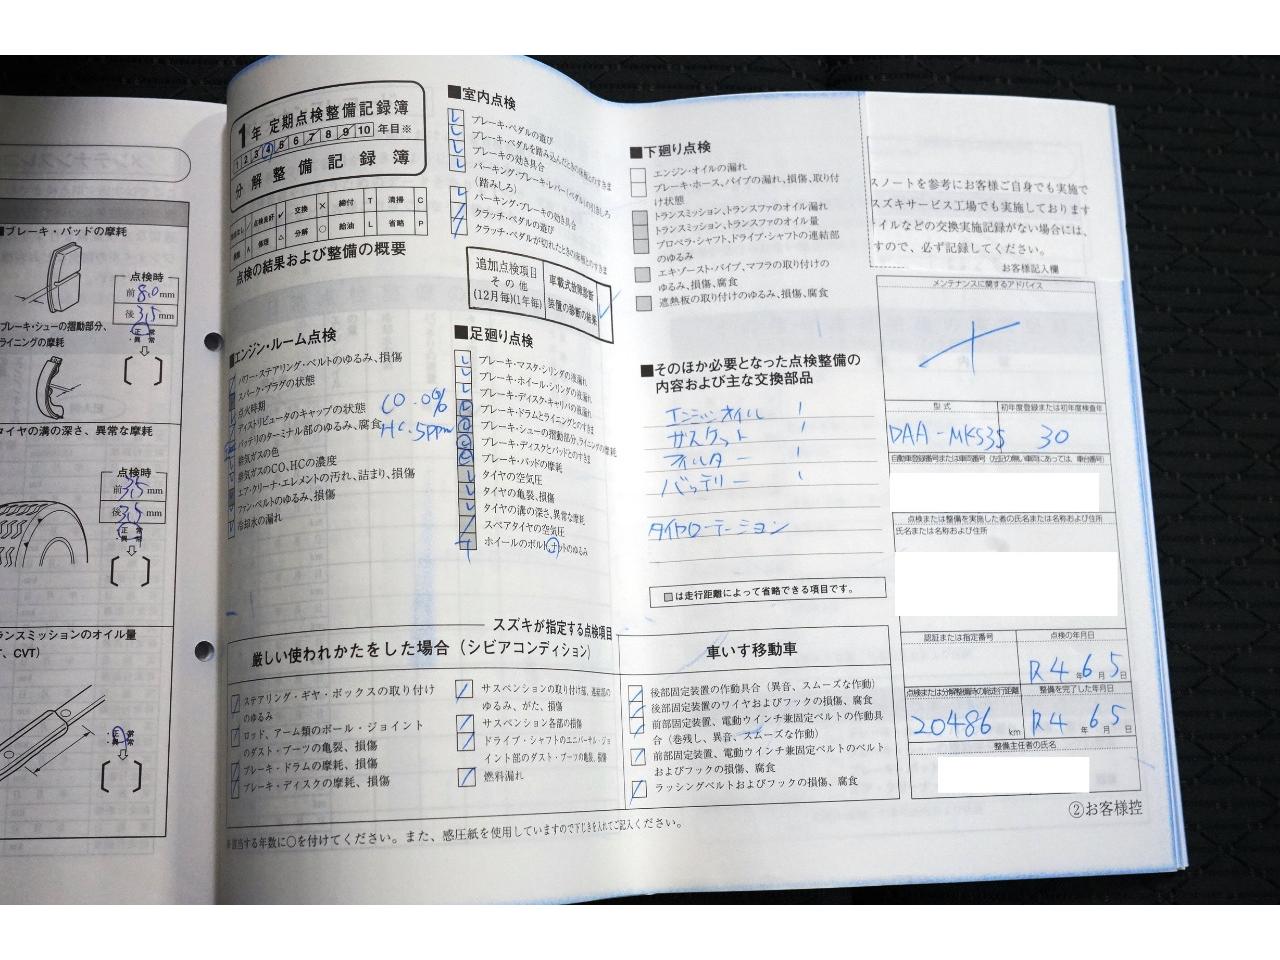 ■ブレーキ・パッドの摩耗
点検時
前 8.0 mm
後 3.5 mm
ブレーキ・シューの摺動部分、
ライニングの摩耗
タイヤの溝の深さ、異常な摩耗
点検時
前 3.5 mm
後 3.5 mm
ランスミッションのオイル量
T、CVT)
1年 定期点検整備記録簿
1 2 3 4 5 6 7 8 9 10 年目※
分解整備記録簿
点検良好 レ 交換 × 締付 T 清掃 C
修理 △ 分解 ○ 給油 L 省略 P
点検の結果および整備の概要
■エンジン・ルーム点検
パワー・ステアリング・ベルトのゆるみ、損傷
スパーク・プラグの状態
点火時期
ディストリビュータのキャップの状態
バッテリのターミナル部のゆるみ、腐食
排気ガスの色
排気ガスのCO、HCの濃度
エア・クリーナ・エレメントの汚れ、詰まり、損傷
ファン・ベルトのゆるみ、損傷
冷却水の漏れ
CO.0%
HC.5ppm
■室内点検
ブレーキ・ペダルの遊び
ブレーキ・ペダルを踏み込んだときの床板とのすきま
ブレーキの効き具合
パーキング・ブレーキ・レバー(ペダル)の引きしろ
(踏みしろ)
パーキング・ブレーキの効き具合
クラッチ・ペダルの遊び
クラッチ・ペダルが切れたときの床板とのすきま
追加点検項目
その他
(12月毎)(1年毎)
車載式故障診断
装置の診断の結果
■足廻り点検
ブレーキ・マスタ・シリンダの液漏れ
ブレーキ・ホイール・シリンダの液漏れ
ブレーキ・ディスク・キャリパの液漏れ
ブレーキ・ドラムとライニングとのすきま
ブレーキ・シューの摺動部分、ライニングの摩耗
ブレーキ・ディスクとパッドとのすきま
ブレーキ・パッドの摩耗
タイヤの空気圧
タイヤの亀裂、損傷
タイヤの溝の深さ、異常な摩耗
スペアタイヤの空気圧
ホイールのボルト、ナットのゆるみ
■下廻り点検
エンジン・オイルの漏れ
ブレーキ・ホース、パイプの漏れ、損傷、取り付
け状態
トランスミッション、トランスファのオイル漏れ
トランスミッション、トランスファのオイル量
プロペラ・シャフト、ドライブ・シャフトの連結部
のゆるみ
エキゾースト・パイプ、マフラの取り付けの
ゆるみ、損傷、腐食
遮熱板の取り付けのゆるみ、損傷、腐食
■そのほか必要となった点検整備の
内容および主な交換部品
エンジンオイル 1
ガスケット 1
フィルター 1
バッテリー 1
タイヤローテーション
は走行距離によって省略できる項目です。
スノートを参考にお客様ご自身でも実施で
スズキサービス工場でも実施しております
イルなどの交換実施記録がない場合には、
すので、必ず記録してください。
お客様記入欄
メンテナンスに関するアドバイス
型式
初年度登録または初年度検査年
DAA-MK53S 30
自動車登録番号または車両番号(左記の無い車両にあっては、車台番号)
点検または整備を実施した者の氏名または名称および住所
氏名または名称および住所
認証または指定番号
点検の年月日
R4年6月5日
点検または分解整備時の総走行距離
整備を完了した年月日
20486 km
R4年6月5日
整備主任者の氏名
②お客様控
スズキが指定する点検項目
厳しい使われかたをした場合(シビアコンディション)
ステアリング・ギヤ・ボックスの取り付け
のゆるみ
ロッド、アーム類のボール・ジョイント
のダスト・ブーツの亀裂、損傷
ブレーキ・ドラムの摩耗、損傷
ブレーキ・ディスクの摩耗、損傷
サスペンションの取り付け部、連結部の
ゆるみ、がた、損傷
サスペンション各部の損傷
ドライブ・シャフトのユニバーサル・ジョ
イント部のダスト・ブーツの亀裂、損傷
燃料漏れ
車いす移動車
後部固定装置の作動具合(異音、スムーズな作動)
後部固定装置のワイヤおよびフックの損傷、腐食
前部固定装置、電動ウインチ兼固定ベルトの作動具
合(巻残し、異音、スムーズな作動)
前部固定装置、電動ウインチ兼固定ベルトのベルト
およびフックの損傷、腐食
ラッシングベルトおよびフックの損傷、腐食
※該当する年数に○を付けてください。また、感圧紙を使用していますので下じきを入れてご記入ください。